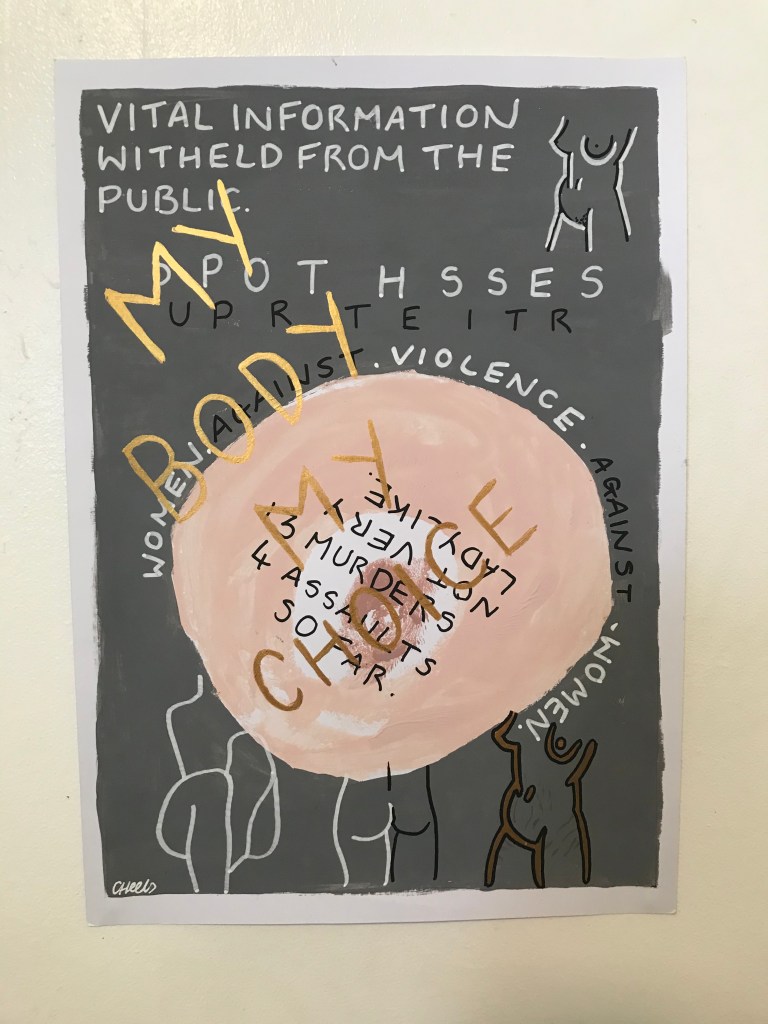 VITAL INFORMATION
WITHELD FROM THE
PUBLIC.
SPOT HSSES
UPR TEITR
WOMEN. AGAINST. VIOLENCE. AGAINST. WOMEN.
NOT VERY
LADYLIKE.
3 MURDERS
4 ASSAULTS
SO FAR.
MY
BODY
MY
CHOICE
CHeels